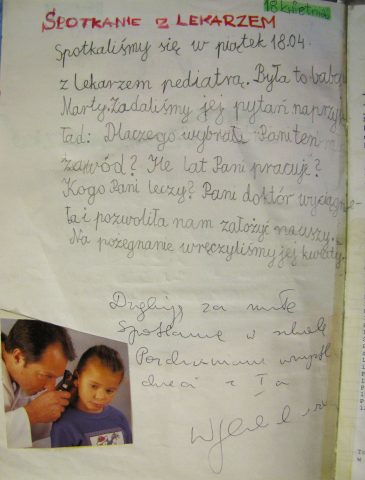 18 kwietnia
SPOTKANIE Z LEKARZEM
Spotkaliśmy się w piątek 18.04.
z lekarzem pediatrą. Była to babcia
Marty. Zadaliśmy jej pytań naprzykład
ład: Dlaczego wybrała Pani ten
zawód? Ile lat Pani pracuje?
Kogo Pani leczy? Pani doktór wyciągnę-
ła i pozwoliła nam założyć na uszy.
Na pożegnanie wręczyliśmy jej kwiaty
Dziękuję za miłe
spotkanie w szkole
Pozdrawiam wszystkie
dzieci z I a